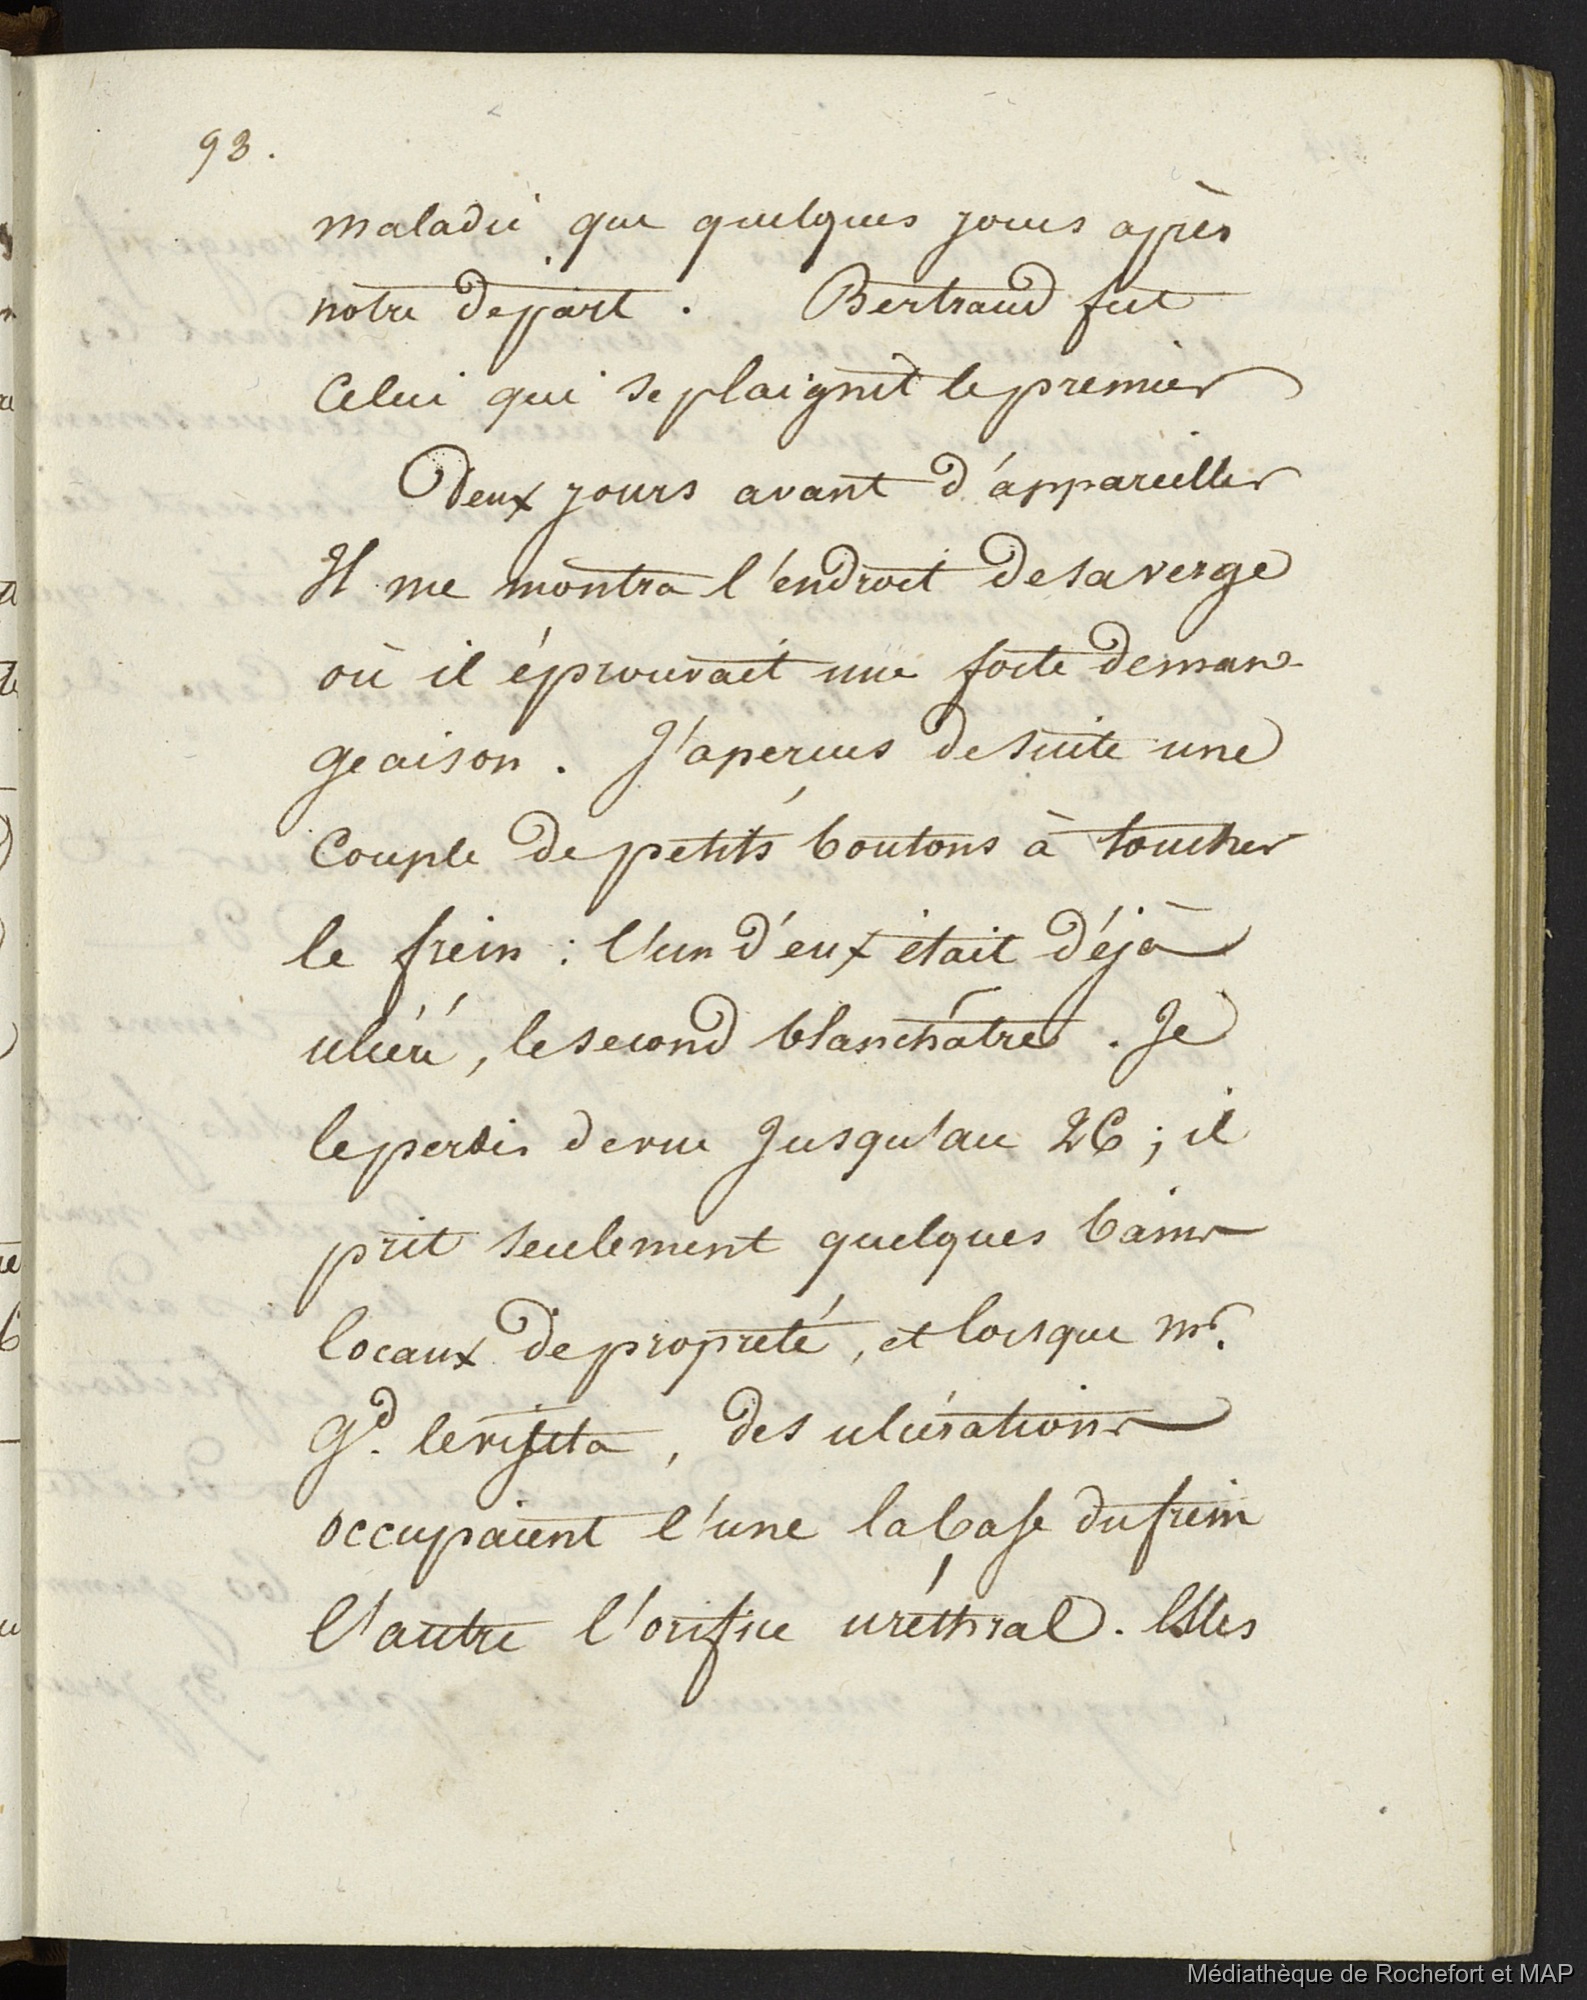 93.
maladie que quelques jours après
notre départ. Bertraud fut
Celui qui se plaignit le premier
Deux jours avant d'appareiller
Il me montra l'endroit de sa verge
où il éprouvait une forte deman-
geaison. J'apercus de suite une
Couple de petits boutons à toucher
le frein : l'un d'eux était déjà
ulcéré, le second blanchâtre. Je
le perdis de vue jusqu'au 26 ; il
prit seulement quelques bains
locaux de propreté, et lorsque mr.
Gd. le visita, des ulcérations
occupaient l'une la base du frein
l'autre l'orifice uréthral. Elles
Médiathèque de Rochefort et MAP